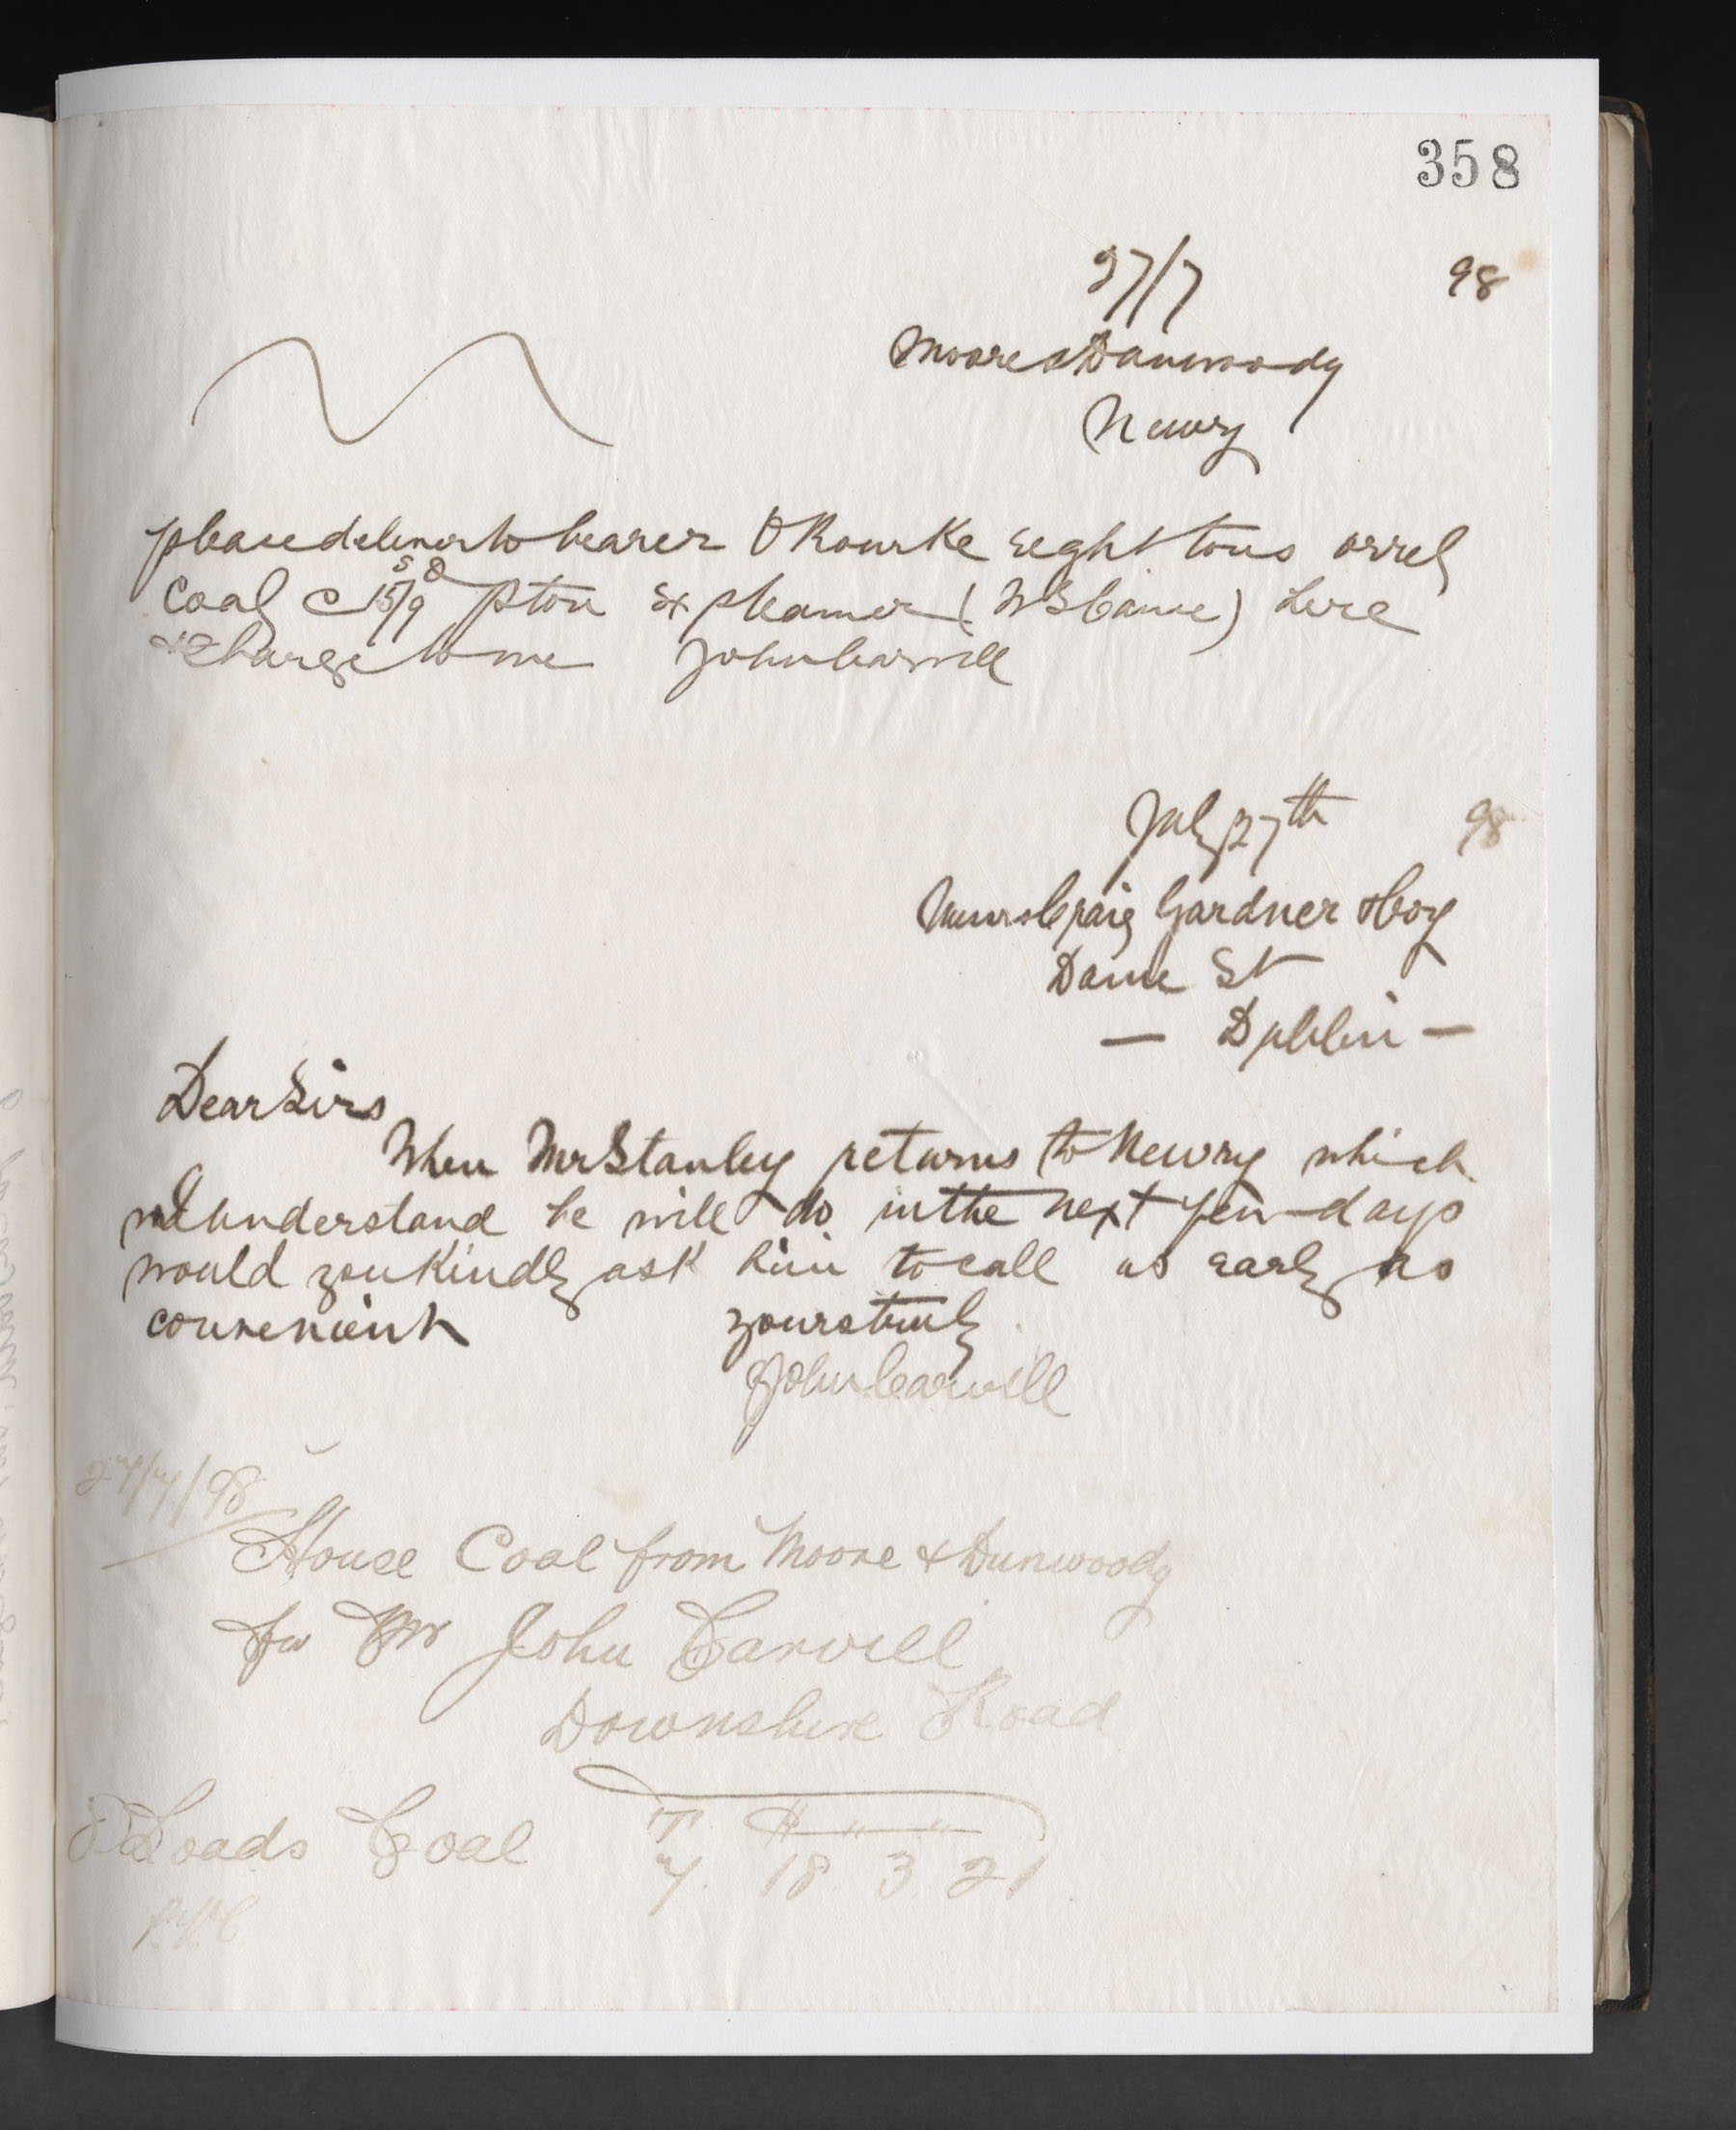 358
27/7 98
Moore & Dunwoody
Newry
please deliver to bearer O Rourke eight tons orrel
Coal @ 15s/9d p ton ex steamer (W S Caine) here
& charge to me John Carvill
July 27th 98
Messrs Craig Gardner & Coy
Dame St
— Dublin —
Dear Sirs
When Mr Stanley returns to Newry which
understand he will do in the next few days
would you kindly ask him to call as early as
convenient yours truly
John Carvill
27/7/98
House Coal from Moore & Dunwoody
for Mr John Carvill
Downshire Road
8 Loads Coal T C " "
7. 18 3 21